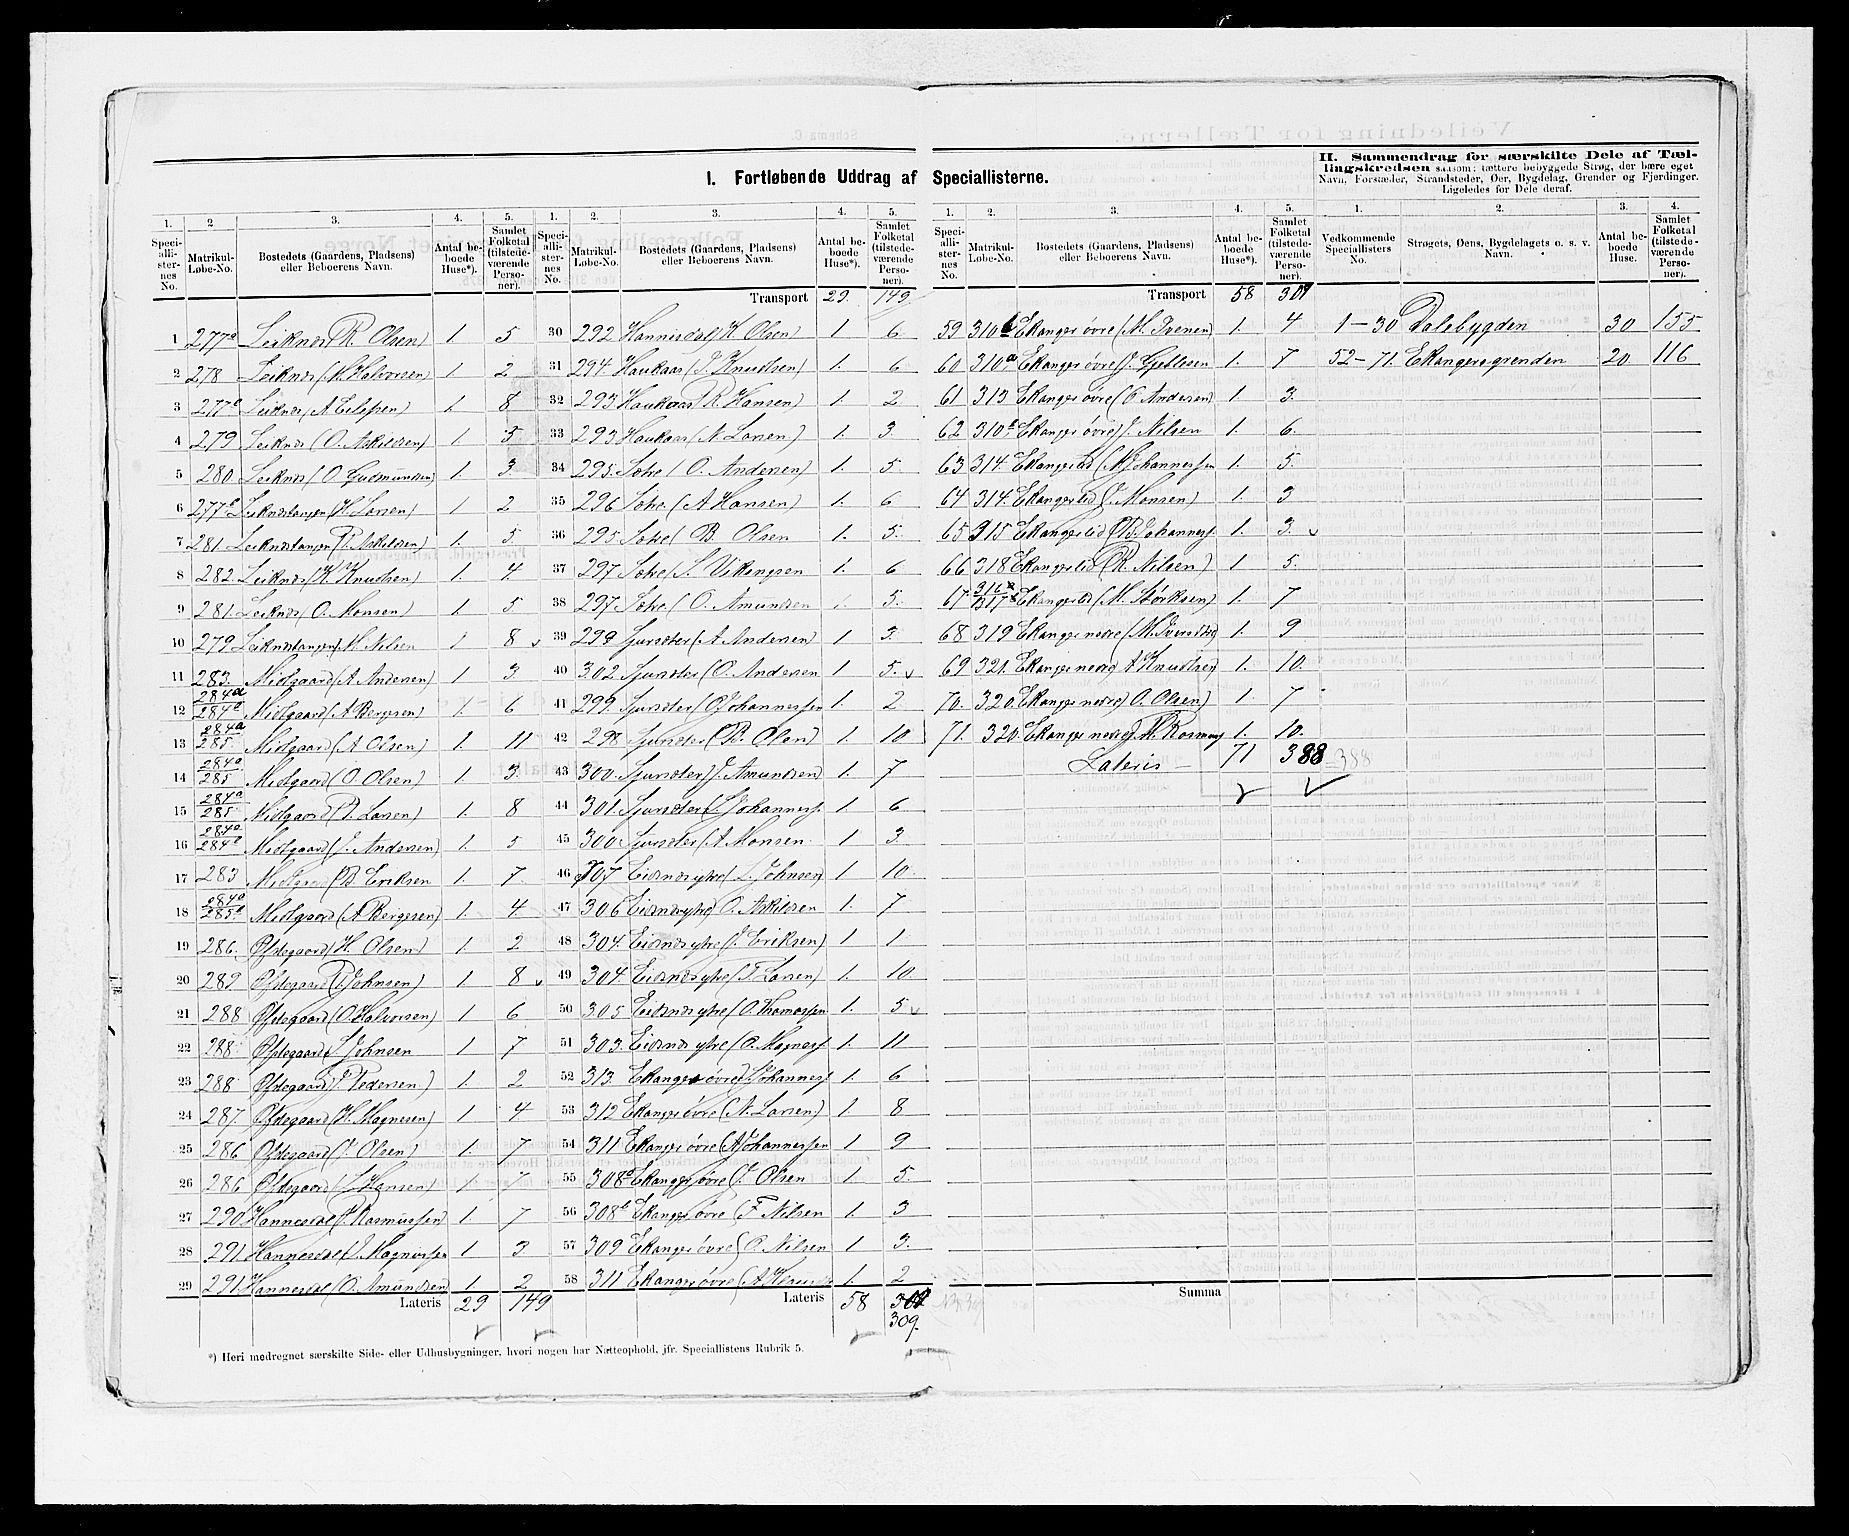 I. Fortløbende Uddrag af Speciallisterne.
II. Sammendrag for særskilte Dele af Tællingskredsen saasom: tættere bebyggede Strøg, der bære eget Navn, Forstæder, Strandsteder, Øer, Bygdelag, Grender og Fjerdinger. Ligeledes for Dele deraf.
1. 2. 3. 4. 5.
Speciallisternes No. Matrikul-Løbe-No. Bostedets (Gaardens, Pladsens) eller Beboerens Navn. Antal beboede Huse*). Samlet Folketal (tilstedeværende Personer).
1 277a Leiknes (R. Olsen) 1 5
2 278 Leiknes (M. Halvorsen) 1 2
3 277 Leiknes (A Eilefsen) 1. 8
4 279 Leiknes (O. Askildsen) 1. 5
5 280 Leiknes (O. Gudmundsen) 1. 3
6 277 Leiknestangen (H. Larsen) 1 2
7 281. Leiknestangen (P. Askildsen) 1. 5
8 282. Leiknes (K. Knudsen) 1. 4
9 281. Leiknes (O. Monsen) 1. 5
10 279 Leiknestangen (M. Nilsen 1 8
11 283. Midtgaard (A Andersen) 1 3
12 284a/284 Midtgaard (A Bergesen) 1. 6
13 284a/285. Midtgaard (A Olsen) 1. 11
14 284a/285 Midtgaard (O. Olsen) 1. 3.
15 284a/285 Midtgaard (P. Larsen) 1. 8
16 284a/284 Midtgaard (J. Andersen) 1. 5
17 283 Midtgaard (B. Eriksen 1. 7.
18 284a/285 Midtgaard (A Bergesen) 1. 4.
19 286. Østegaard (H. Olsen) 1. 2
20 289 Østegaard (J. Johnsen) 1 8
21 288 Østegaard (O Halvorsen) 1 6
22 288 Østegaard (J Johnsen 1 7
23 288 Østegaard (P. Pedersen) 1. 2
24 287. Østegaard (H. Magnesen) 1 4
25 286 Østegaard (J Olsen) 1. 7
26 286 Østegaard (L Hansen) 1. 7
27 290 Hannesdal (J Rasmussen) 1. 7
28 291 Hannesdal (J. Magnussen 1 3
29 291 Hannesdal (O. Amundsen) 1. 2
Lateris 29 149
1. 2. 3. 4. 5.
Speciallisternes No. Matrikul-Løbe-No. Bostedets (Gaardens, Pladsens) eller Beboerens Navn. Antal beboede Huse*). Samlet Folketal (tilstedeværende Personer).
Transport 29. 149
30 292 Hannesdal (K Olsen) 1 6
31 294. Haukaas (J. Knudsen) 1. 6
32 293 Haukaas (R. Hansen) 1. 2
33 293 Haukaas (N. Larsen) 1. 3.
34 295. Sotre (O. Andersen) 1. 5.
35 296 Sotre (A Hansen) 1. 6
36 295 Sotre (B. Olsen 1. 5.
37 297 Sotre (S. Vikingsen 1. 6
38 297. Sotre (O. Amundsen 5.
39 299 Sjursæter (A Andersen) 1 3.
40 302 Sjursæter (O. Andersen 1 5.
41 299. Sjursæter (O Johannessen 1. 2
42 298 Sjursæter (B. Olsen) 1. 10
43 300. Sjursæter (J. Amundsen) 1. 7
44 301. Sjursæter (J. Johanness. 1. 6
45 300. Sjursæter (A Monsen 1 3.
46 307 Eidsnes ytre (L. Johnsen) 1. 10.
47 306 Eidsnes ytre O. Askildsen 1. 7
48 304. Eidsnes ytre (J. Eriksen) 1 1
49 304. Eidsnes ytre (T. Larsen) 1. 10.
50 305 Eidsnes ytre (O. Thomassen 1. 5
51 303. Eidsnes ytre (O. Magness 1. 11
52 313. Ekanger øvre (J. Johanness. 1. 6
53 312 Ekanger øvre (N. Larsen) 1. 8
54 311 Ekanger øvre (A Johannessen 1 9
55 308a Ekanger øvre (J. Olsen 1. 5.
56 308b Ekanger øvre (F Nilsen 1. 3
57 309 Ekanger øvre (O. Nilsen 1 3.
58 311 Ekanger øvre 1. 2
Lateris 58
309.
*) Heri medregnet særskilte Side- eller Udhusbygninger, hvori nogen har Natteophold, jfr. Speciallistens Rubrik 5.
1. 2. 3. 4. 5.
Speciallisternes No. Matrikul-Løbe-No. Bostedets (Gaardens, Pladsens) eller Beboerens Navn. Antal beboede Huse*). Samlet Folketal (tilstedeværende Personer).
Transport 58 309
59 310 Ekanger øvre (M. Iversen) 1. 4
60 310a Ekanger øvre (J. Gjetlesen 1. 7
61 313 Ekanger øvre (O Andersen) 1 3.
62 310 Ekanger øvre (J. Nilsen 1. 6.
63 314. Ekangerlid (M Johannessen 1. 5.
64 314. Ekangerlid (J. Monsen) 1. 3
65 315 Ekangerlid (B. Johanness. 1. 3.
66 318 Ekangerlid (R. Nilsen) 1 5.
67 316/317 Ekangerlid (M. Størksen) 1. 7
68 319 Ekanger nedre 1. 9
69 321. Ekanger nedre A Knudsen 1. 10.
70. 320. Ekanger nedre O. Olsen) 1. 7
71. 320. Ekanger nedre 1. 10.
Lateris — 71 388 388
Summa
1. 2. 3. 4.
Vedkommende Speciallisters No. Strøgets, Øens, Bygdelagets o. s. v. Navn. Antal beboede Huse. Samlet Folketal (tilstedeværende Personer).
1 — 30 Dalebygden 30 155
52 — 71. Ekangersgrenden 20. 116